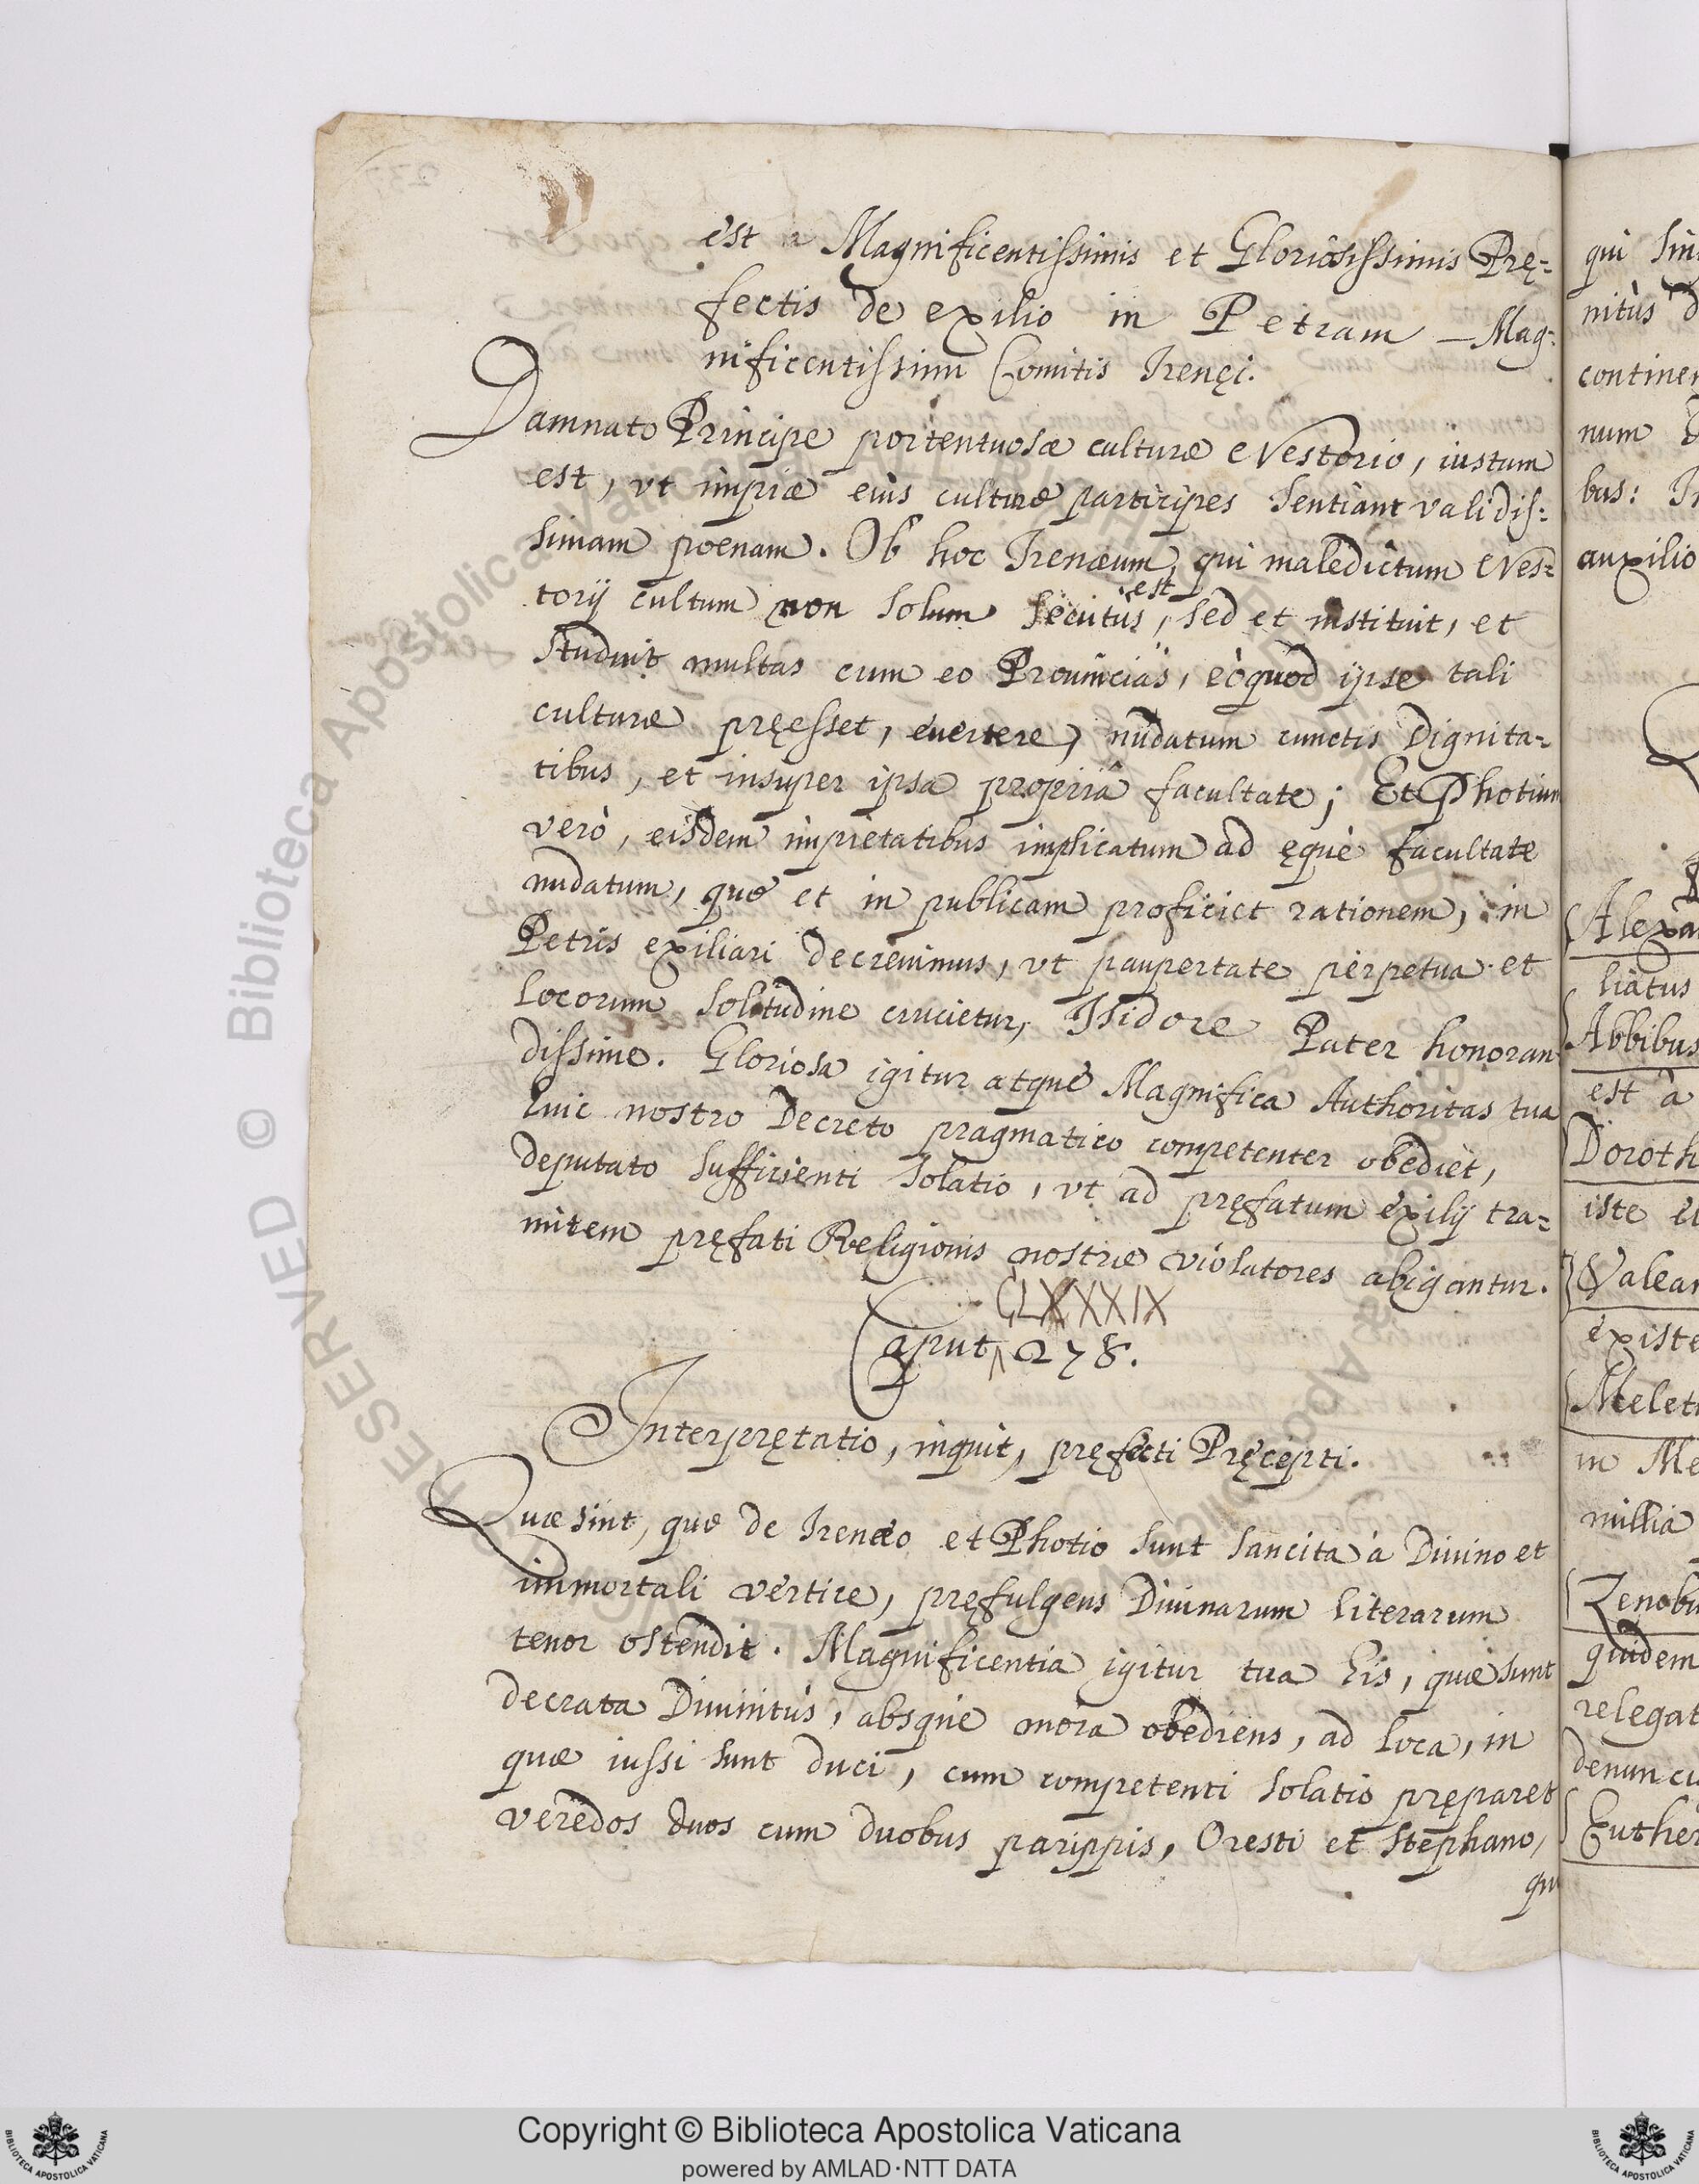 est a Magnificentissimis et Gloriosissimis Prę=
fectis de exilio in Petram — Mag=
nificentissimi Comitis Irenęi.
Damnato Principe portentuosæ culturæ Nestorio, iustum
est, vt impiæ eius culturæ participes sentiant validis=
simam poenam. Ob hoc Irenæum, qui maledictum Nes=
torij cultum non solum secutus est, sed et instituit, et
studuit multas cum eo Prouincias, eòquod ipse tali
culturæ pręesset, euertere, nudatum cunctis Dignita=
tibus, et insuper ipsa propriâ facultate; Et Photium
verò, eisdem impietatibus implicatum ad ęquè facultate
nudatum, quæ et in publicam proficict rationem, in
Petris exiliari decreuimus, vt paupertate perpetua et
locorum solitudine crucietur, Isidore Pater honoran
dissime. Gloriosa igitur atque Magnifica Authoritas tua
huic nostro Decreto pragmatico competenter obediet,
deputato sufficienti solatio, vt ad pręfatum exilij tra=
mitem pręfati Religionis nostræ violatores abigantur.
CLXXXIX
Caput 278.
Interpretatio, inquit, pręfecti Pręcepti.
Quæ sint, quæ de Irenæo et Photio sunt sancita à Diuino et
immortali vertice, pręfulgens Diuinarum literarum
tenor ostendit. Magnificentia igitur tua his, quæ sunt
decrata Diuinitùs, absque mora obediens, ad loca, in
quæ iussi sunt duci, cum competenti solatio pręparet
veredos duos cum duobus parippis, Oresti et Stephano,
qui
qui sin
nitùs d
continen
num
bus:
auxilio
Alexa
liatus
Abbibus
est à
Doroth
iste
Valea
existe
Melet
in Me
millia
Zenobi
quidem
relegat
denun
Euther
© Biblioteca Apostolica Vaticana
RESERVED
Copyright © Biblioteca Apostolica Vaticana
powered by AMLAD·NTT DATA
BIBLIOTECA APOSTOLICA VATICANA
BIBLIOTECA APOSTOLICA VATICANA